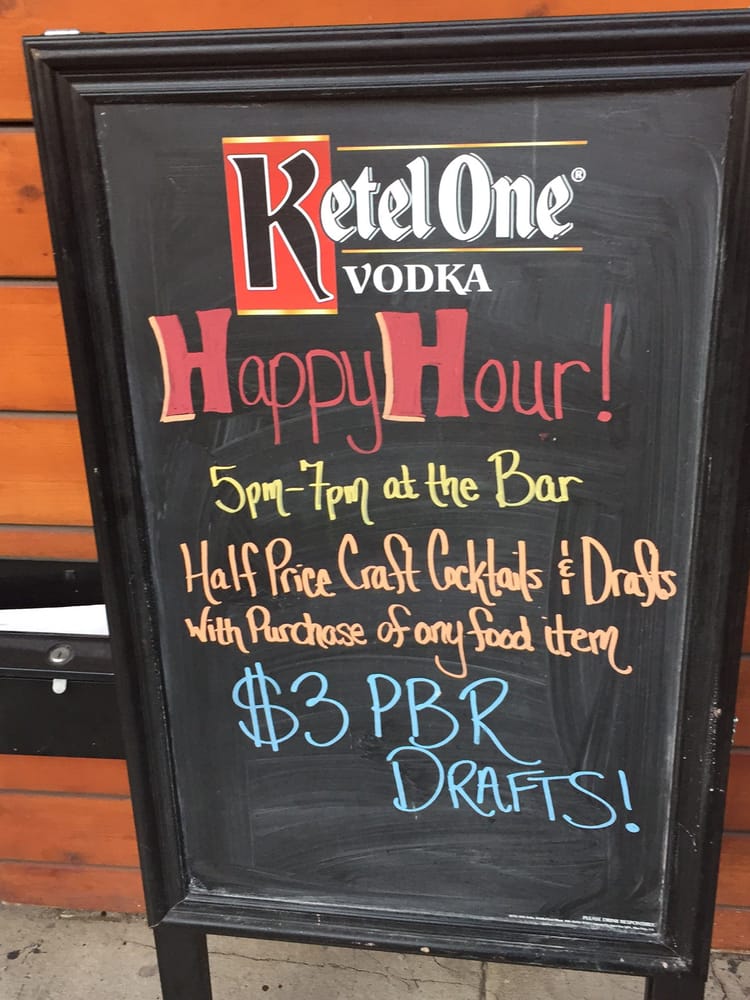 Ketel One®
VODKA
Happy Hour!
5pm-7pm at the Bar
Half Price Craft Cocktails & Drafts
With Purchase of any food item
$3 PBR
DRAFTS!
PLEASE DRINK RESPONSIBLY.